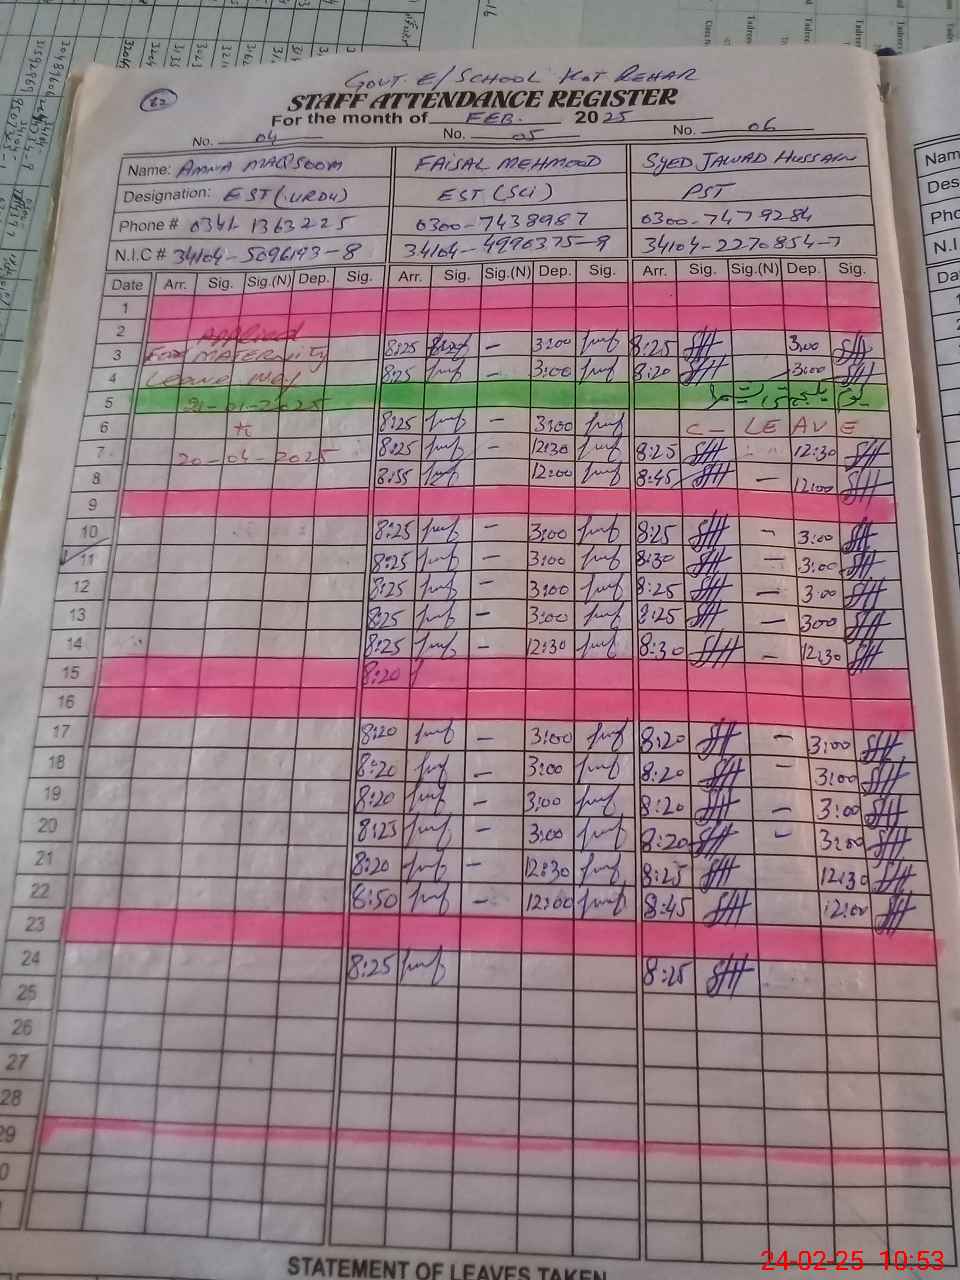 GOVT. E/SCHOOL KOT REHAR
22
STAFF ATTENDANCE REGISTER
For the month of FEB. 2025
No. 04 No. 05 No. 06
Name: AMNA MAQSOOM FAISAL MEHMOOD SYED JAWAD HUSSAIN
Designation: EST (URDU) EST (SCI) PST
Phone # 0341-1363225 0300-7438987 0300-7479284
N.I.C # 34104-5096193-8 34104-4996375-9 34104-2270854-7
Date Arr. Sig. Sig.(N) Dep. Sig. Arr. Sig. Sig.(N) Dep. Sig. Arr. Sig. Sig.(N) Dep. Sig.
1
2 Applied
3 For MATERNITY 8:25 – 3:00 8:25 3:00
4 Leave w.e.f 8:25 – 3:00 8:20 3:00
5 21-01-2025
6 to 8:25 – 3:00 C- LEAVE
7 20-04-2025 8:25 – 12:30 8:25 12:30
8 8:55 – 12:00 8:45 – 12:00
9
10 8:25 – 3:00 8:25 – 3:00
11 8:25 – 3:00 8:30 – 3:00
12 8:25 – 3:00 8:25 – 3:00
13 8:25 – 3:00 8:25 – 3:00
14 8:25 – 12:30 8:30 – 12:30
15 8:20
16
17 8:20 – 3:00 8:20 – 3:00
18 8:20 – 3:00 8:20 – 3:00
19 8:20 – 3:00 8:20 – 3:00
20 8:25 – 3:00 8:20 – 3:00
21 8:20 – 12:30 8:25 12:30
22 8:50 – 12:00 8:45 12:00
23
24 8:25 8:25
25
26
27
28
29
STATEMENT OF LEAVES TAKEN
24-02-25 10:53